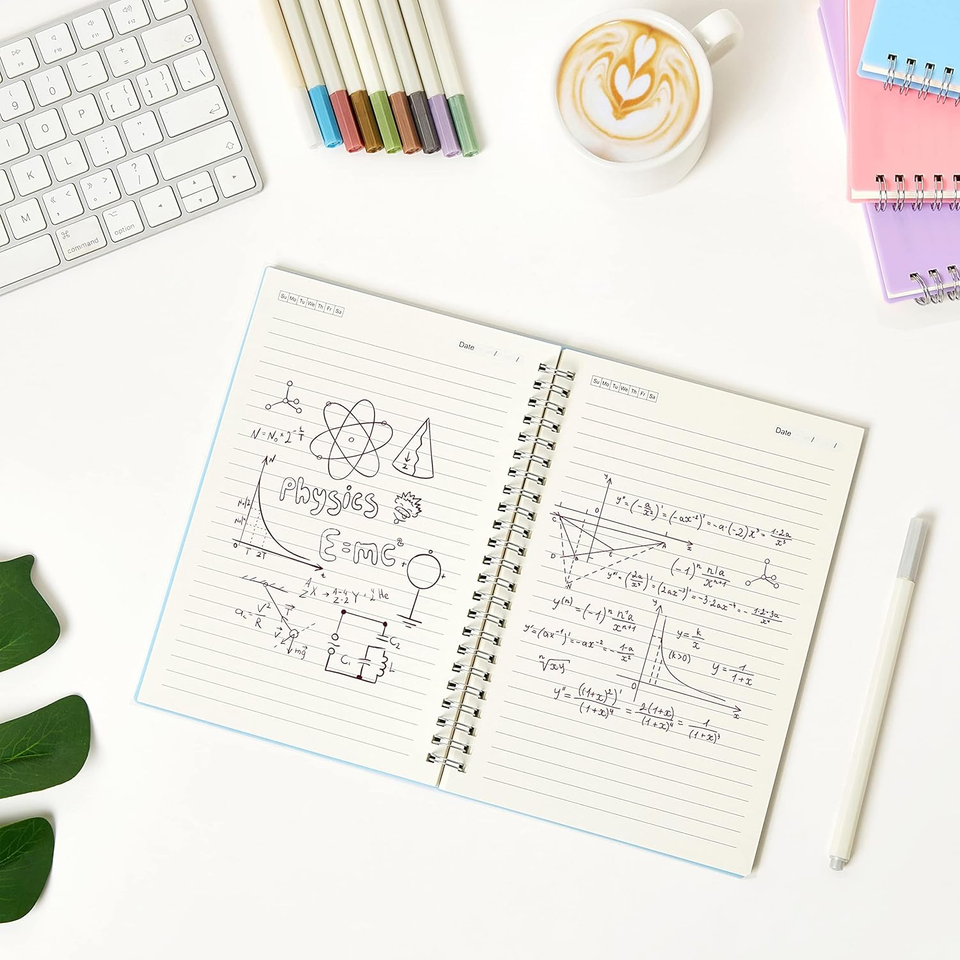 9 0 - + ] \
I O P { [ } ]
K L : ; " '
M « , » . ? /
⌘ command ⌥ option
Su Mo Tu We Th Fr Sa
Date / /
N = N₀ * 2
N
Physics
0 T 2T t
E=mc²
X → Y + He
A A-4 4
Z-2 2
aₙ = V²/R
mg
C₂
C₁
L
Su Mo Tu We Th Fr Sa
Date / /
y'' = (-a/x²)' = (-ax⁻²)' = -a·(-2)x⁻³ = 1·2a/x³
(-1)ⁿ n!a/xⁿ⁺¹
y''' = (2a/x³)' = (2ax⁻³)' = -3·2ax⁻⁴ = -1·2·3a/x⁴
y(n) = (-1)ⁿ n!a/xⁿ⁺¹
y' = (ax⁻¹)' = -ax⁻² = -1·a/x²
y = k/x
(k>0)
y = 1/1+x
ⁿ√xy
y'' = ((1+x)²)'/(1+x)⁴ = 2(1+x)/(1+x)⁴ = 1/(1+x)³